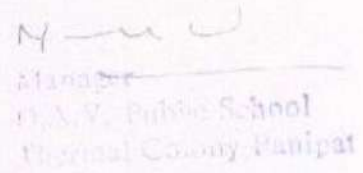 Manager
D.A.V. Public School
Thermal Colony Panipat